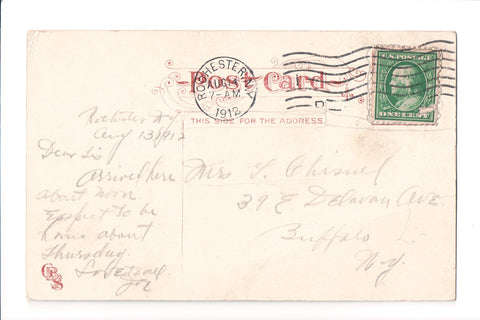 ROCHESTER, N.Y.
AUG 14
7-AM
1912
U.S. POSTAGE
ONE CENT
Post Card
THIS SIDE FOR THE ADDRESS.
Rochester N.Y.
Aug 13 1912
Dear Sis
arrived here
about noon
Expect to be
home about
Thursday
Love to all
Joe
Mrs
39 E Delavan Ave.
Buffalo
N.Y.